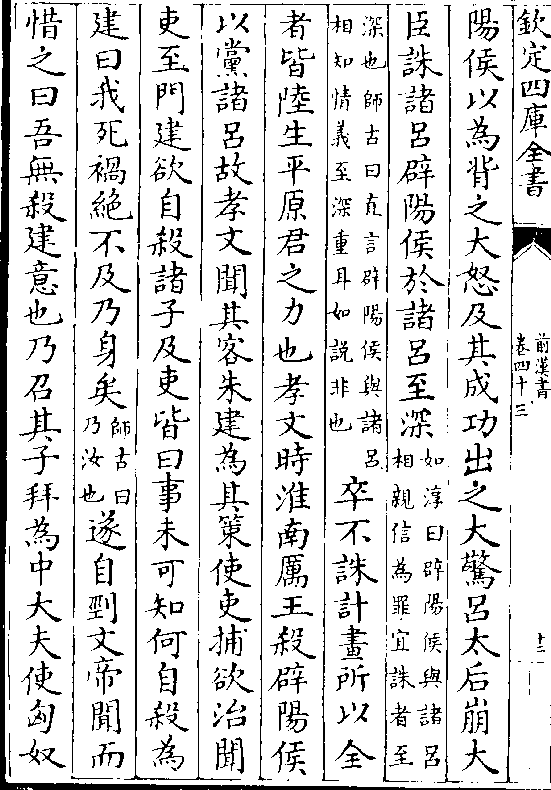 欽定四庫全書
前漢書
卷四十三
十三
陽侯以為背之大怒及其成功出之大驚呂太后崩大
臣誅諸呂辟陽侯於諸呂至深如淳曰辟陽侯與諸呂相親信為罪宜誅者至
深也師古曰直言辟陽侯與諸呂相知情義至深重耳如說非也卒不誅計畫所以全
者皆陸生平原君之力也孝文時淮南厲王殺辟陽侯
以黨諸呂故孝文聞其客朱建為其策使吏捕欲治聞
吏至門建欲自殺諸子及吏皆曰事未可知何自殺為
建曰我死禍絕不及乃身矣師古曰乃汝也遂自剄文帝聞而
惜之曰吾無殺建意也乃召其子拜為中大夫使匈奴